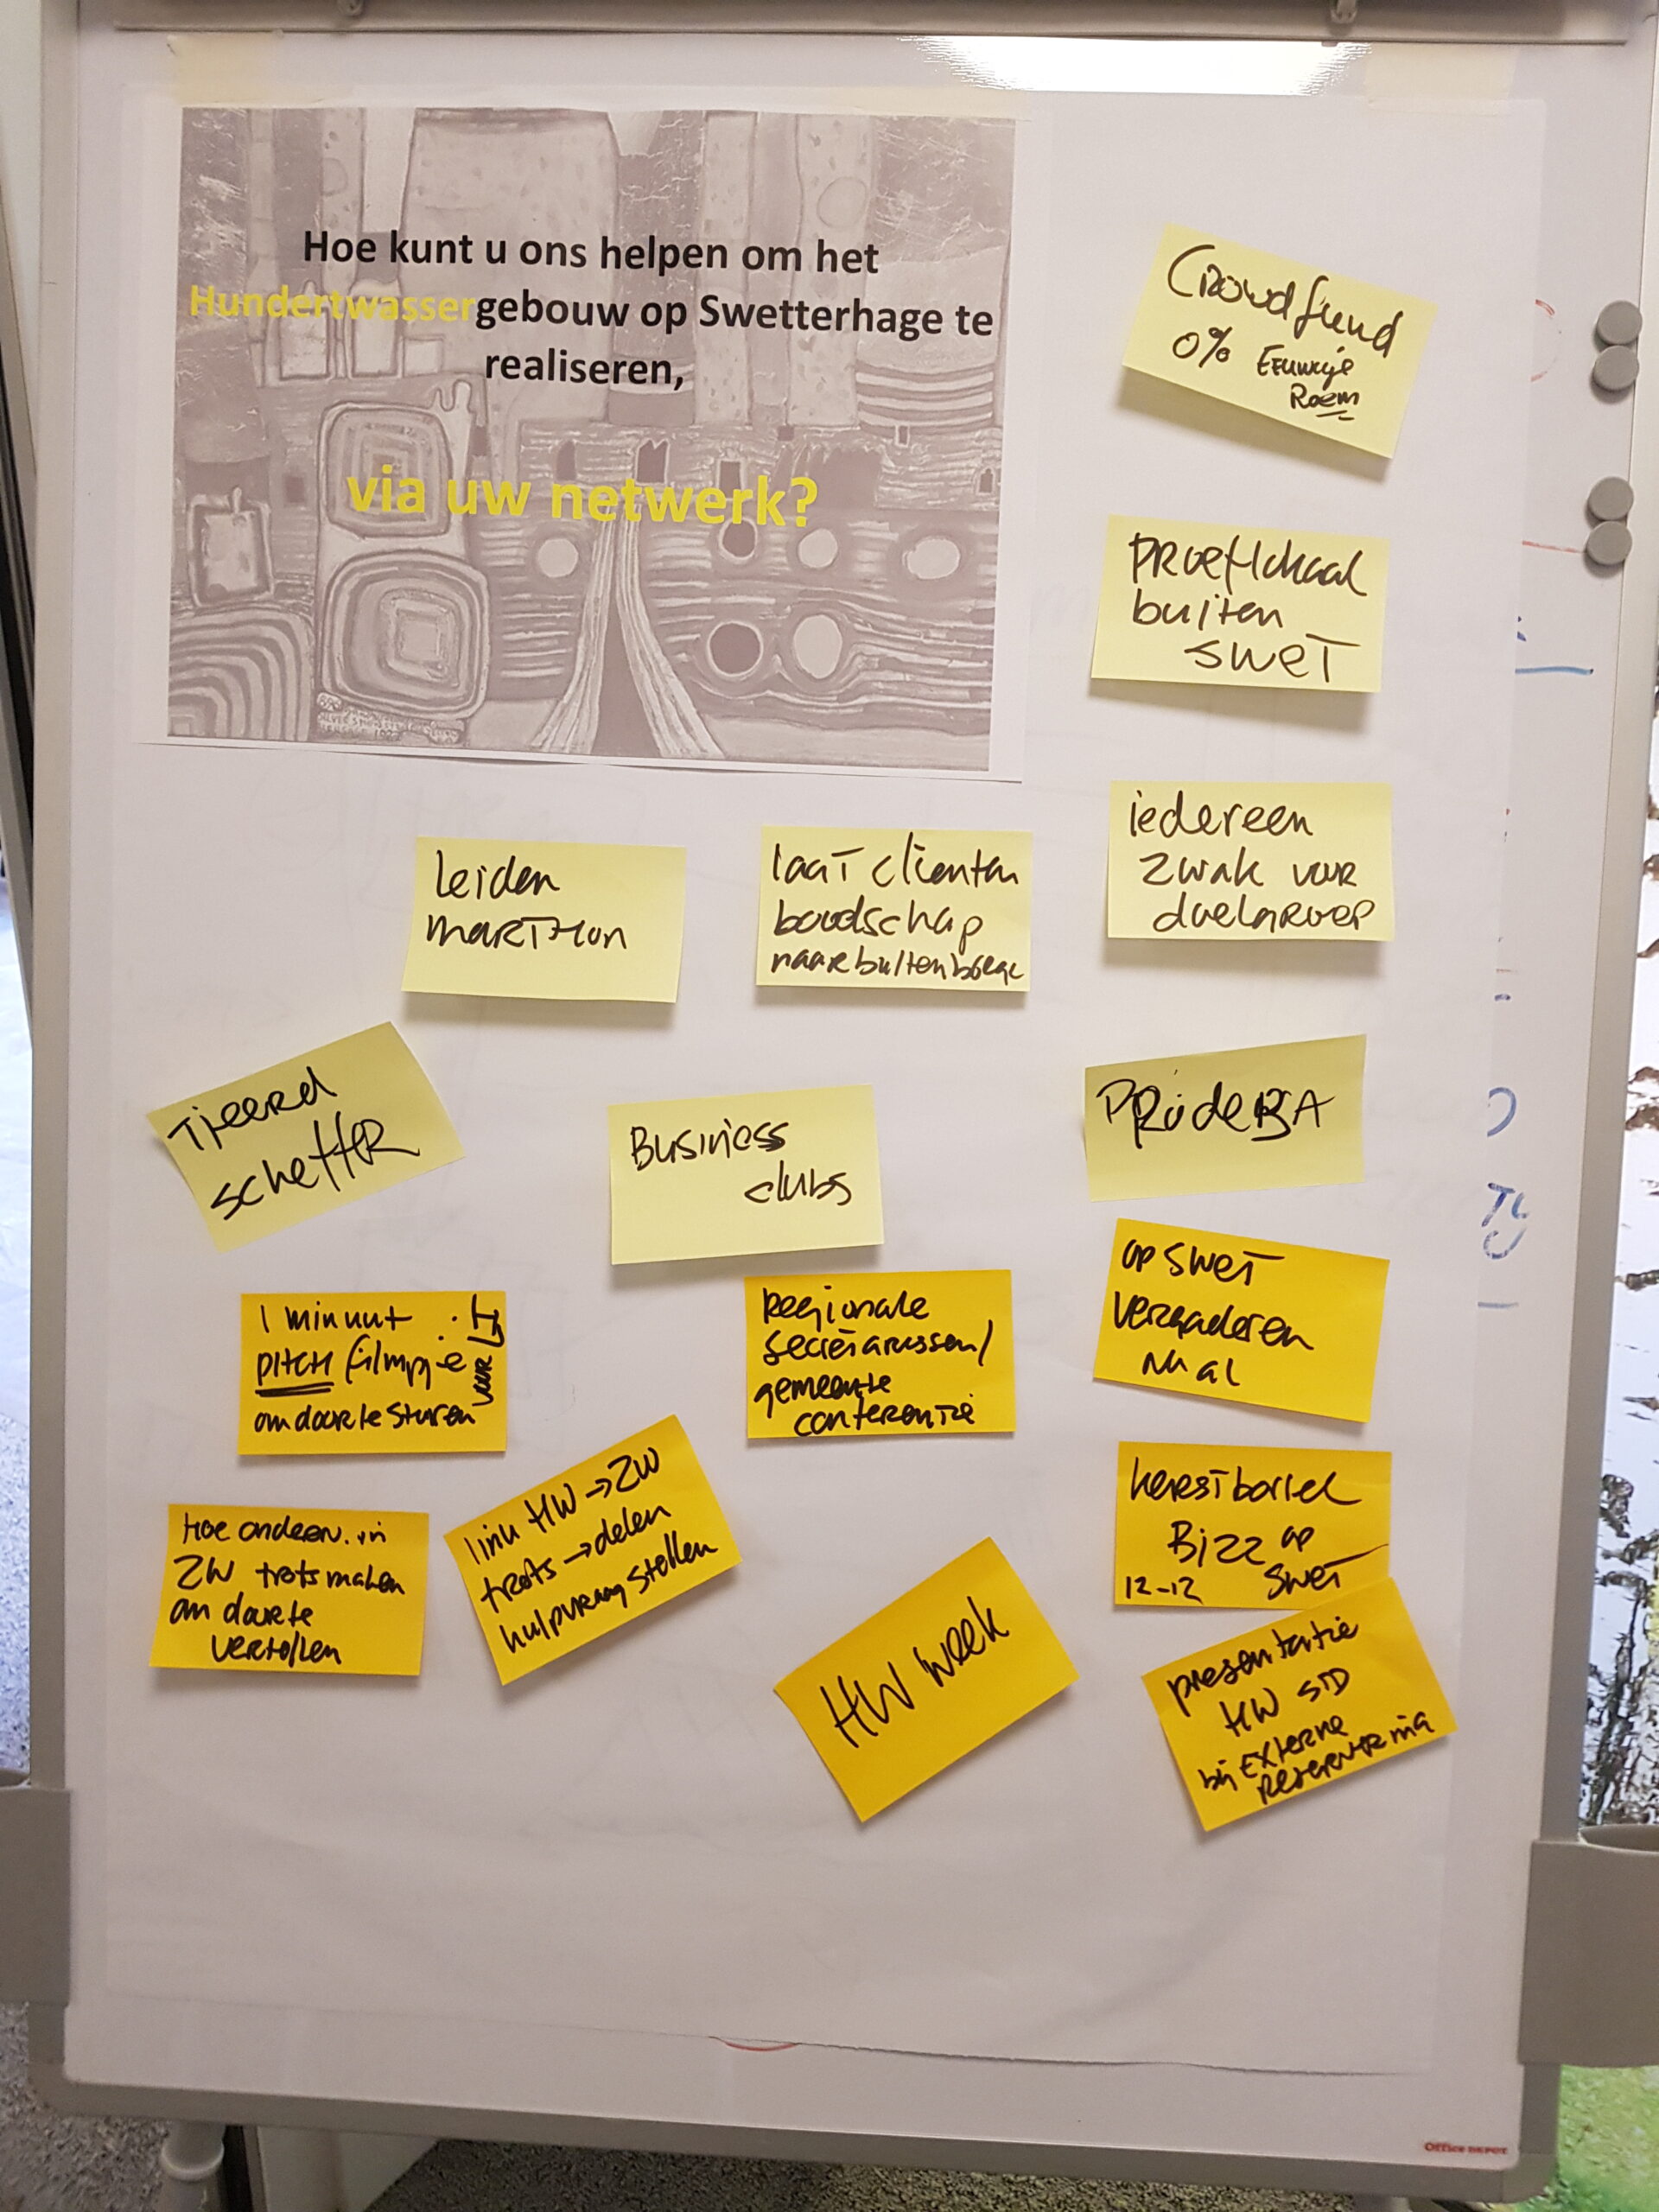 Hoe kunt u ons helpen om het
Hundertwassergebouw op Swetterhage te
realiseren,
via uw netwerk?
Crowdfund
0% Eeuwige
Roem
PROEFlokaal
buiten
SWET
iedereen
zwak voor
doelgroep
leiden
MARTHon
laat clienten
boodschap
naar buiten
Tjeerd
scheffer
Business
clubs
op SWET
vergaderen
1 minuut
pitch filmpje
om door te sturen
voor
Regionale
secretarissen/
gemeente
conferentie
kerstborrel
Bizz op
12-12 Swet
Hoe anderen in
ZW trots maken
om door te
vertellen
link HW → ZW
trots → delen
hulpvraag stellen
HW week
presentatie
HW
bij EXterne
Office DEPOT